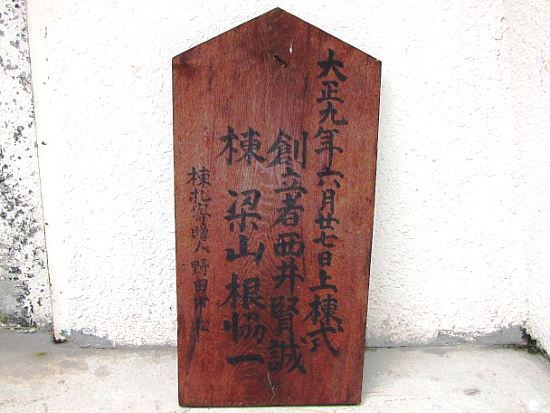 大正九年六月廿七日上棟式
創立者西井賢誠
棟梁山根協一
棟札寄贈人野田市松